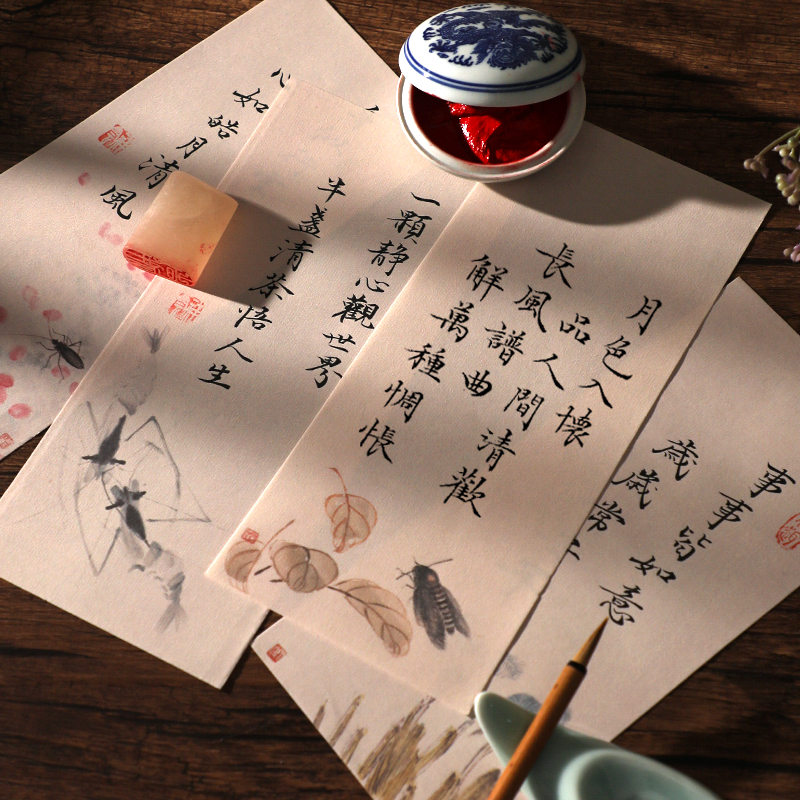 事事皆如意
歲歲常
月色入懷
品人間清歡
長風譜曲
解萬種惆悵
一顆靜心觀世界
半盞清茶悟人生
心如皓月清風